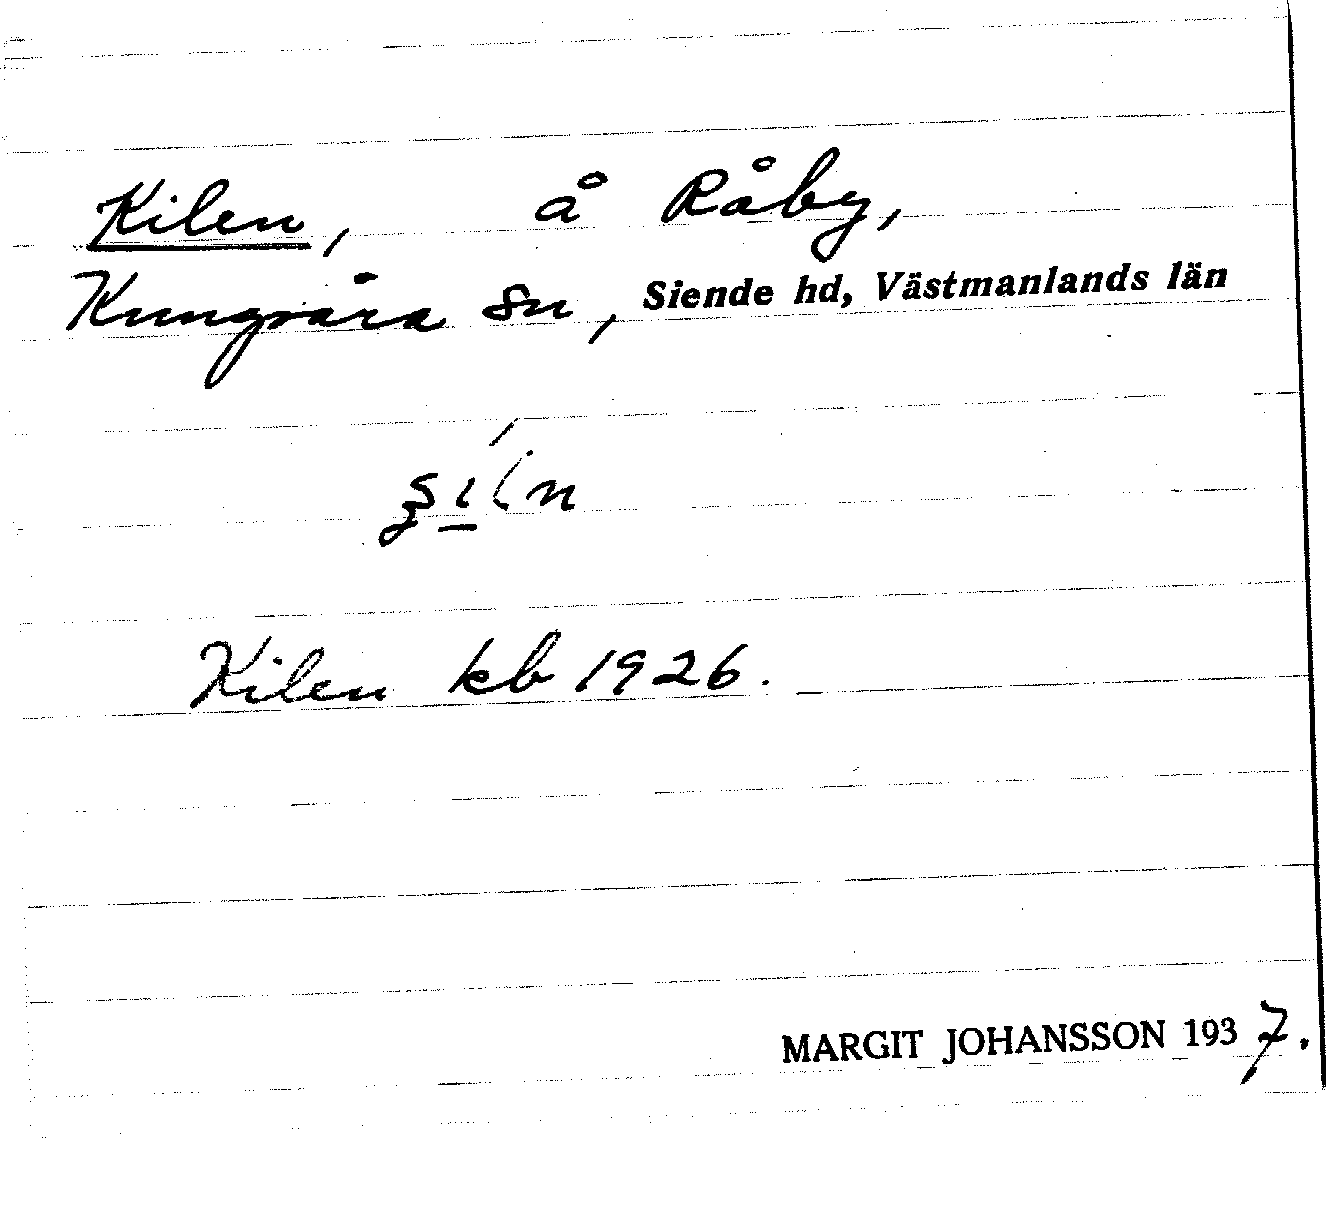 Kilen, å Råby,
Kungsåra sn, Siende hd, Västmanlands län
Kilen kb 1926.
MARGIT JOHANSSON 1937.